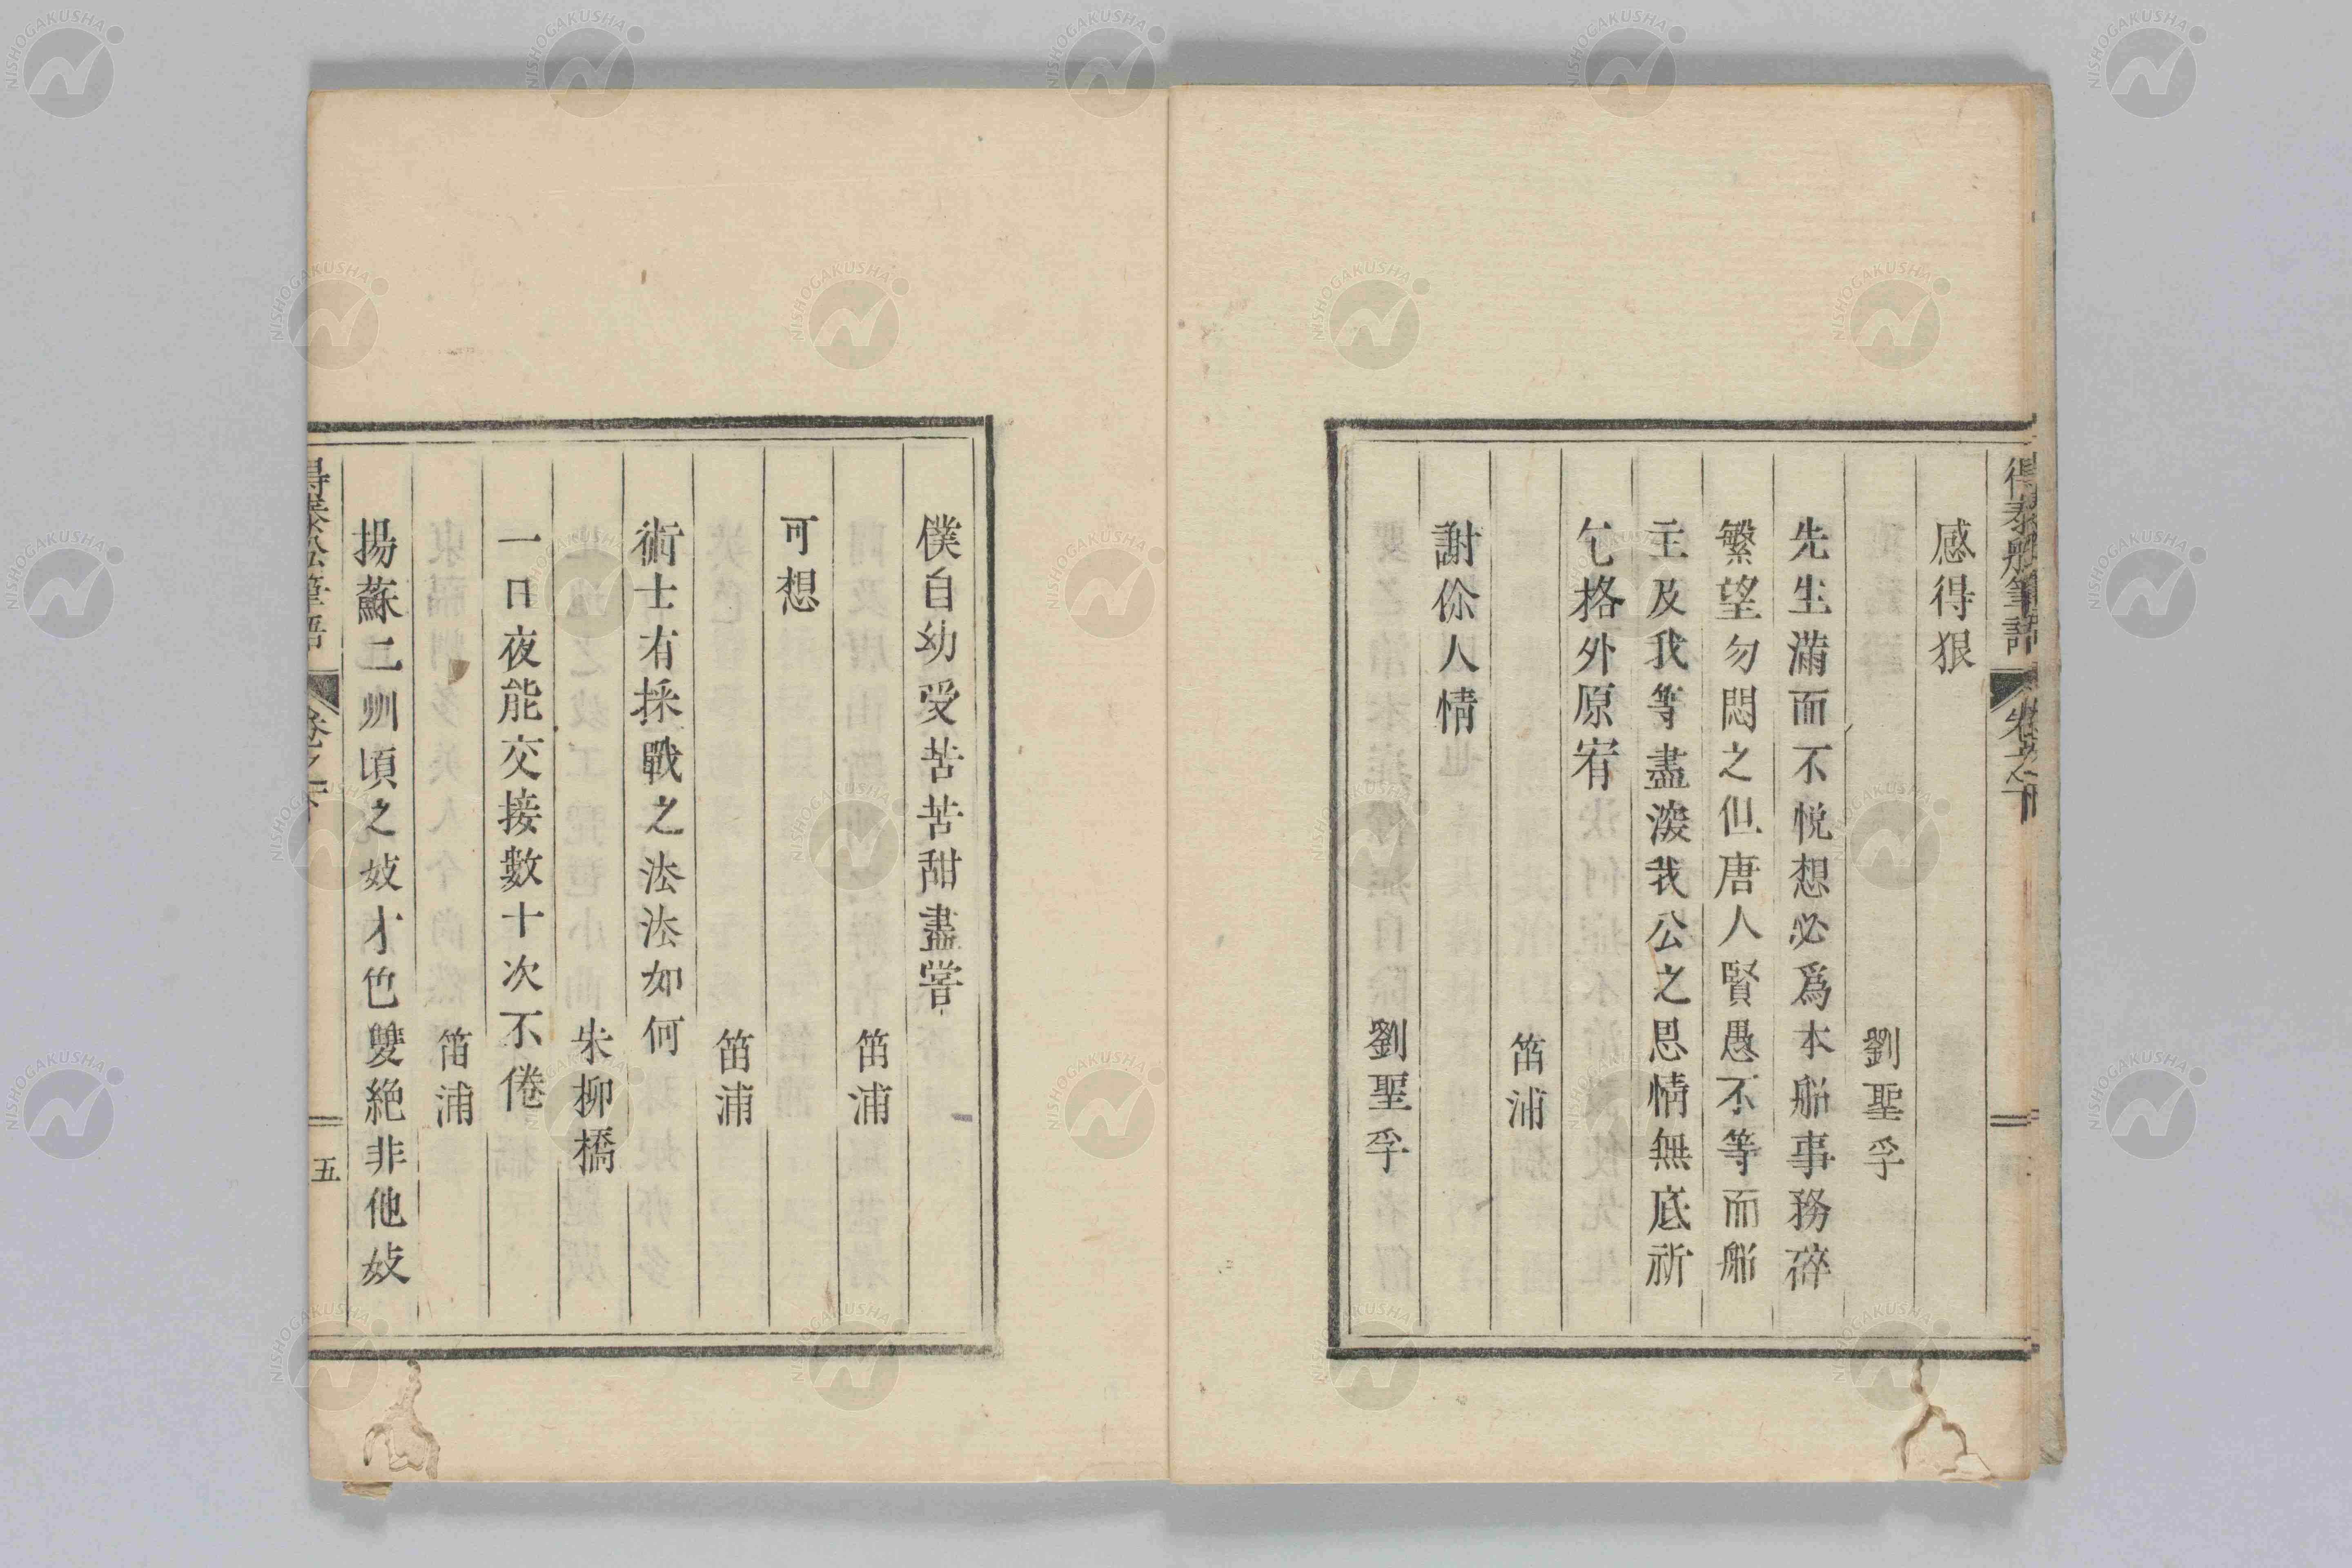 得泰船筆語 卷之下
感得狠
劉聖孚
先生滿面不悅想必爲本船事務碎
繁望勿悶之但唐人賢愚不等而船
主及我等盡深我公之恩情無底祈
乞格外原宥
笛浦
謝你人情
劉聖孚
僕自幼受苦苦甜盡嘗
笛浦
可想
笛浦
術士有採戰之法法如何
朱柳橋
一日夜能交接數十次不倦
笛浦
揚蘇二州頃之妓才色雙絕非他妓
五
NISHOGAKUSHA